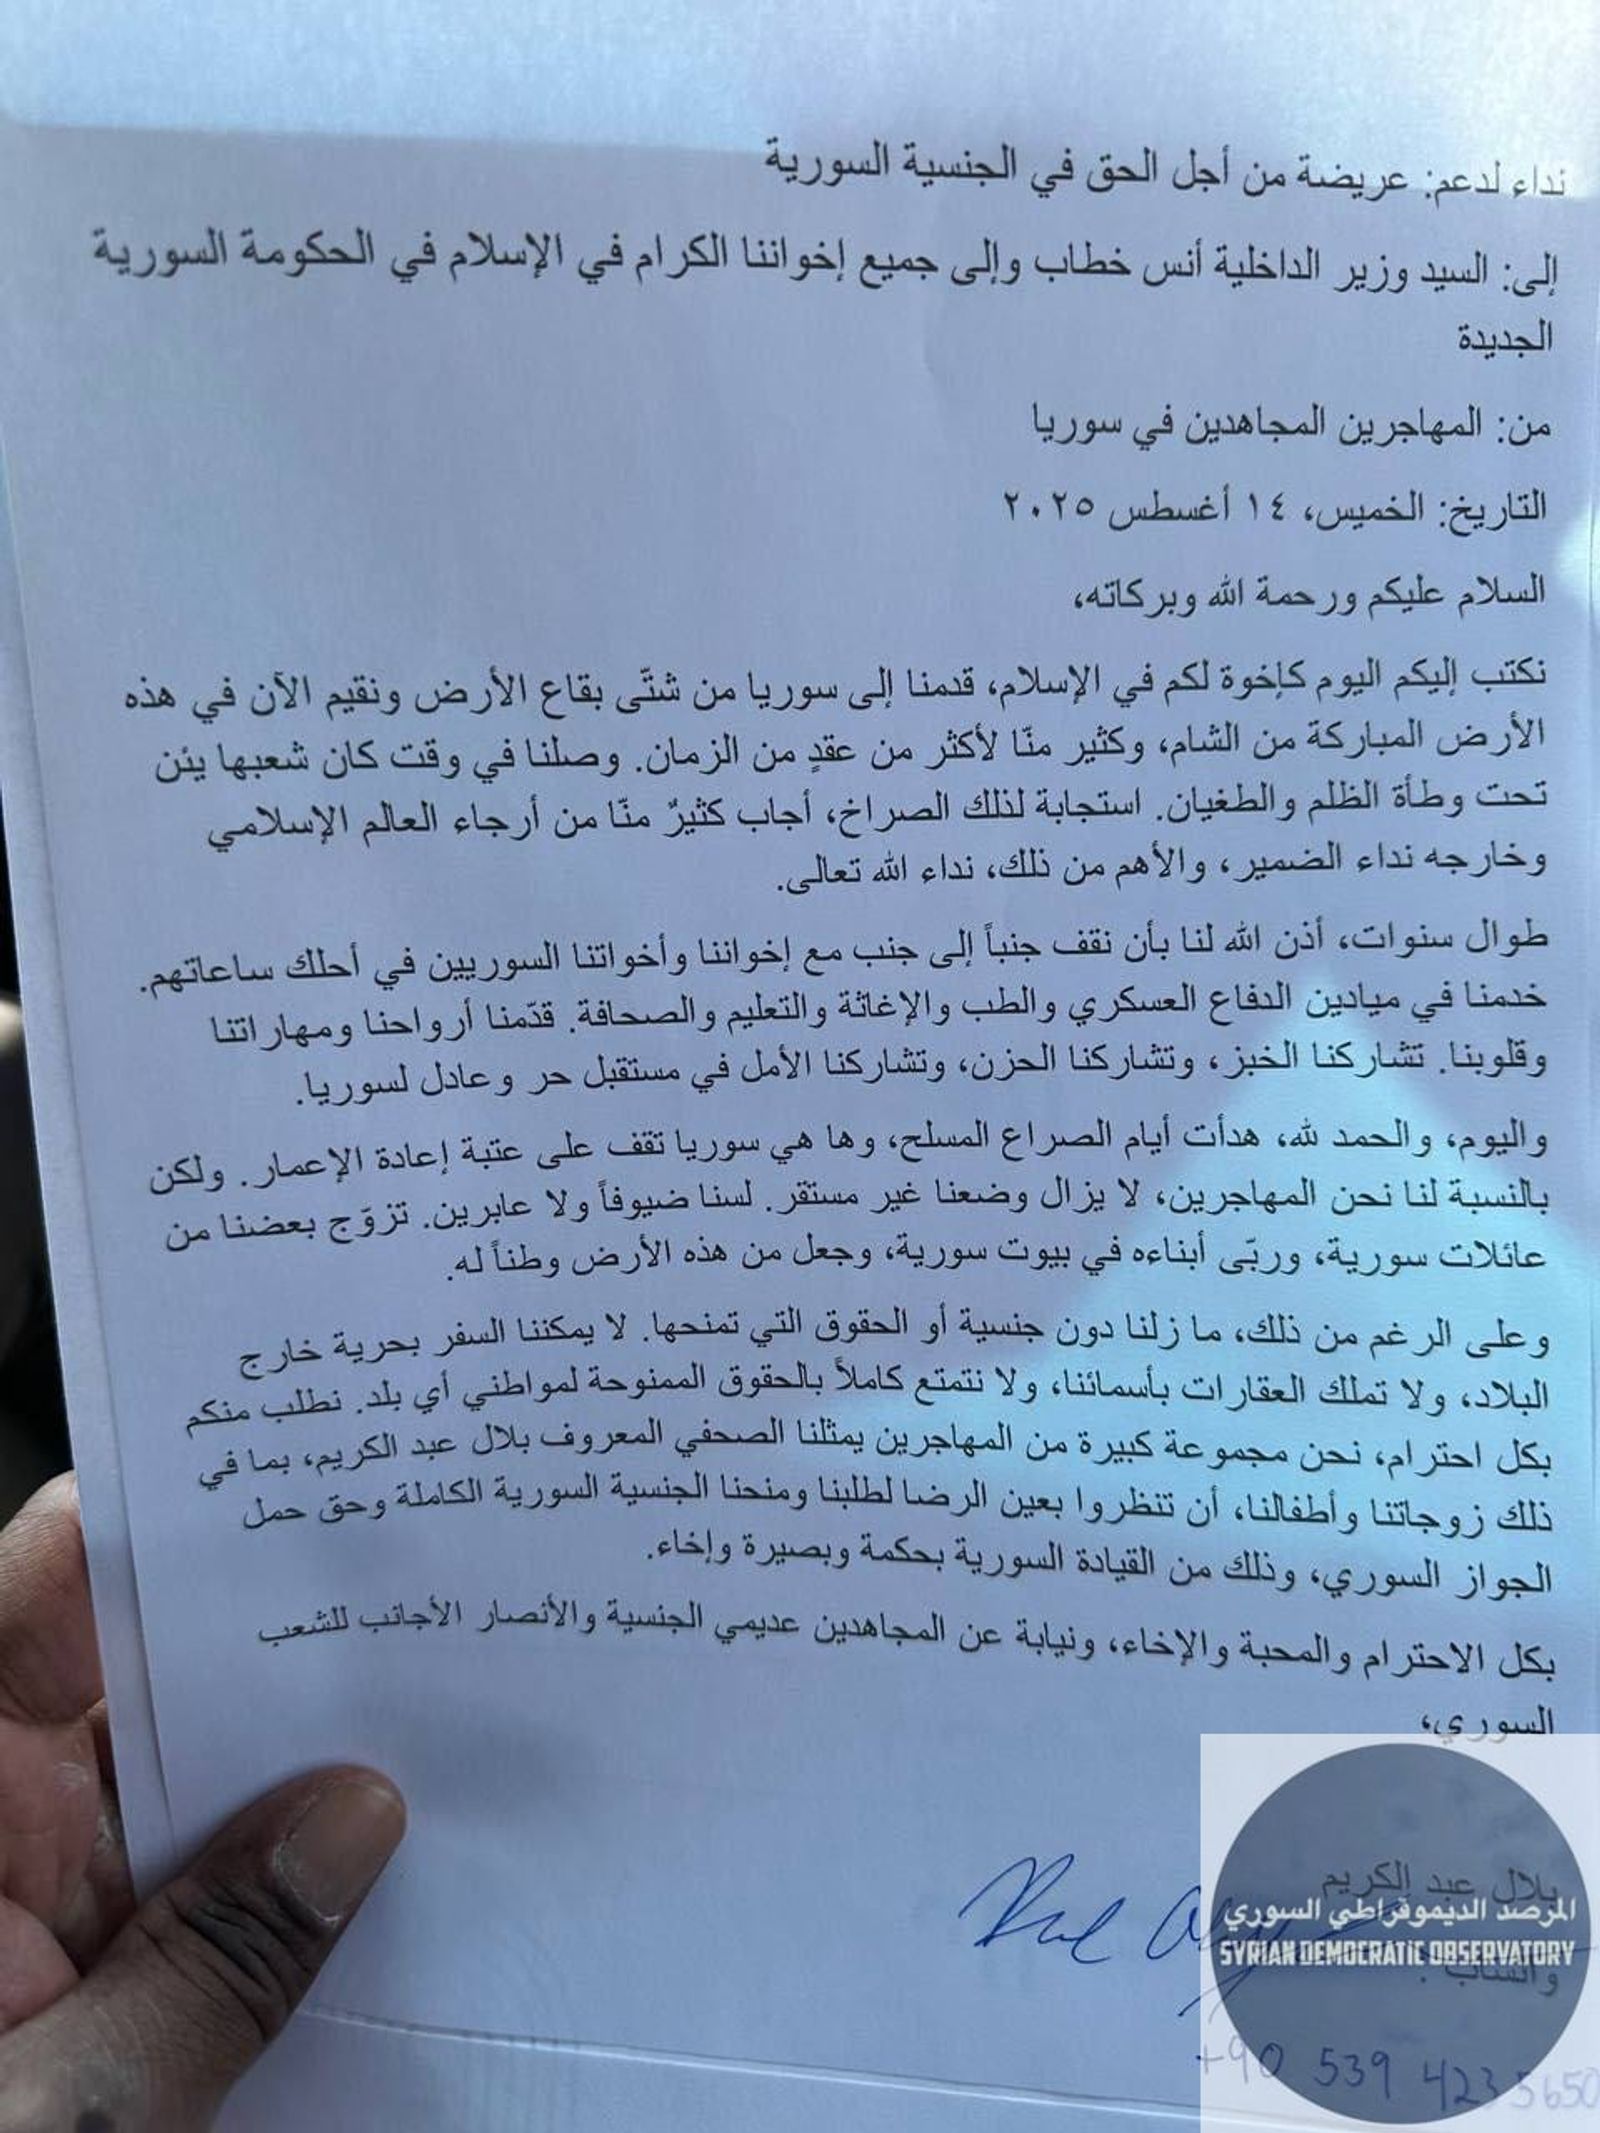 نداء لدعم: عريضة من أجل الحق في الجنسية السورية
إلى: السيد وزير الداخلية أنس خطاب وإلى جميع إخواننا الكرام في الإسلام في الحكومة السورية
الجديدة
من: المهاجرين المجاهدين في سوريا
التاريخ: الخميس، ١٤ أغسطس ٢٠٢٥
السلام عليكم ورحمة الله وبركاته،
نكتب إليكم اليوم كإخوة لكم في الإسلام، قدمنا إلى سوريا من شتّى بقاع الأرض ونقيم الآن في هذه
الأرض المباركة من الشام، وكثير منّا لأكثر من عقدٍ من الزمان. وصلنا في وقت كان شعبها يئن
تحت وطأة الظلم والطغيان. استجابة لذلك الصراخ، أجاب كثيرٌ منّا من أرجاء العالم الإسلامي
وخارجه نداء الضمير، والأهم من ذلك، نداء الله تعالى.
طوال سنوات، أذن الله لنا بأن نقف جنباً إلى جنب مع إخواننا وأخواتنا السوريين في أحلك ساعاتهم.
خدمنا في ميادين الدفاع العسكري والطب والإغاثة والتعليم والصحافة. قدّمنا أرواحنا ومهاراتنا
وقلوبنا. تشاركنا الخبز، وتشاركنا الحزن، وتشاركنا الأمل في مستقبل حر وعادل لسوريا.
واليوم، والحمد لله، هدأت أيام الصراع المسلح، وها هي سوريا تقف على عتبة إعادة الإعمار. ولكن
بالنسبة لنا نحن المهاجرين، لا يزال وضعنا غير مستقر. لسنا ضيوفاً ولا عابرين. تزوّج بعضنا من
عائلات سورية، وربّى أبناءه في بيوت سورية، وجعل من هذه الأرض وطناً له.
وعلى الرغم من ذلك، ما زلنا دون جنسية أو الحقوق التي تمنحها. لا يمكننا السفر بحرية خارج
البلاد، ولا تملك العقارات بأسمائنا، ولا نتمتع كاملاً بالحقوق الممنوحة لمواطني أي بلد. نطلب منكم
بكل احترام، نحن مجموعة كبيرة من المهاجرين يمثلنا الصحفي المعروف بلال عبد الكريم، بما في
ذلك زوجاتنا وأطفالنا، أن تنظروا بعين الرضا لطلبنا ومنحنا الجنسية السورية الكاملة وحق حمل
الجواز السوري، وذلك من القيادة السورية بحكمة وبصيرة وإخاء.
بكل الاحترام والمحبة والإخاء، ونيابة عن المجاهدين عديمي الجنسية والأنصار الأجانب للشعب
السوري،
بلال عبد الكريم
المرصد الديموقراطي السوري
SYRIAN DEMOCRATIC OBSERVATORY
+90 539 423 5650